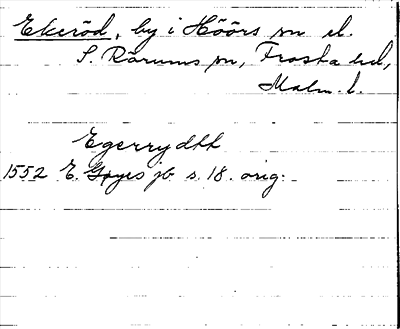 Ekeröd, by i Höörs sn el.
S. Rörums sn, Frosta hd,
Malm. l.
Egerrydtt
1552 E. Gøyes jb s. 18. orig.